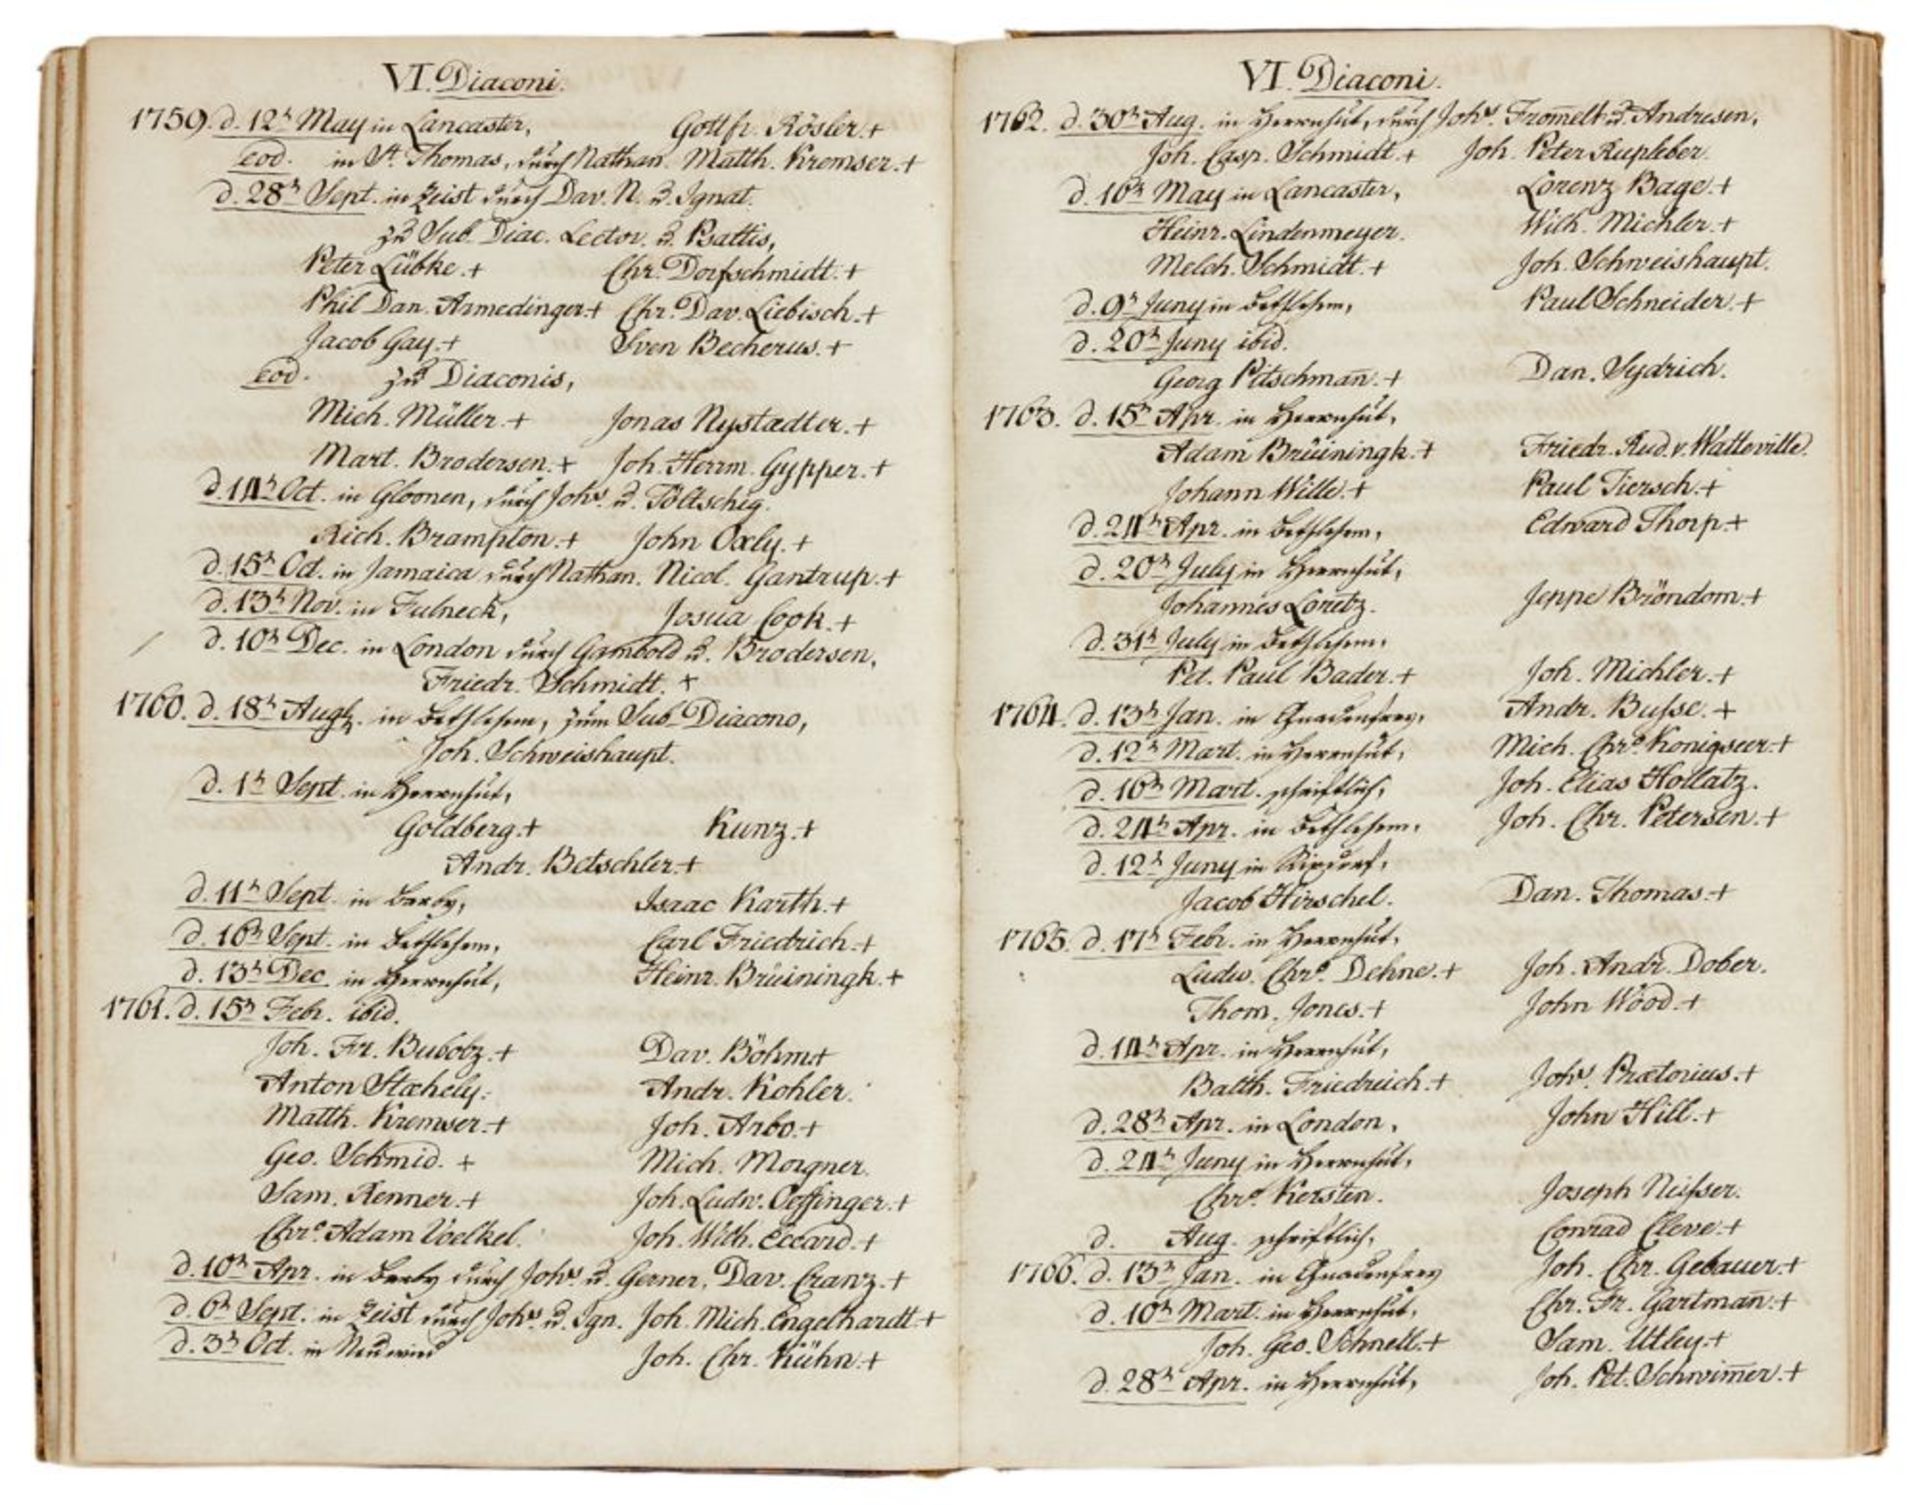 VI. Diaconi.
1759. d. 12t May in Lancaster, Gottfr. Rösler.+
eod. in St. Thomas, durch Nathan. Matth. Kremser.+
d. 28t Sept. in Zeist durch Dav. N. u. Ignat.
zu Sub. Diac. Lector. u.
Peter Lübke.+ Chr. Dorfschmidt.+
Phil Dan. Armedinger+ Chr. Dav. Liebisch.+
Jacob Gay.+ Sven Becherus.+
eod. zu Diaconis,
Mich. Müller.+ Jonas Nystædter.+
Mart. Brodersen.+ Joh. Herrm. Gypper.+
d. 14t Oct. in Gloonen, durch Johs. u. Töltschig.
Rich. Brampton.+ John Oxly.+
d. 15t Oct. in Jamaica durch Nathan. Nicol. Gantrup.+
d. 13t Nov. in Fulneck, Josua Cook.+
d. 10t Dec. in London durch Gambold u. Brodersen,
Friedr. Schmidt.+
1760. d. 18t Aug. in Bethlehem, zum Sub-Diacono,
Joh. Schweishaupt.
d. 1t Sept. in Herrnhut,
Goldberg.+ Kunz.+
Andr. Betschler.+
d. 11t Sept. in Barby, Isaac Karth.+
d. 16t Sept. in Bethlehem, Carl Friedrich.+
d. 13t Dec. in Herrnhut, Heinr. Brüiningk.+
1761. d. 15t Febr. ibid.
Joh. Fr. Bubobz.+ Dav. Böhm.+
Anton Stæhely. Andr. Kohler.
Matth. Kremser.+ Joh. Arbo.+
Geo. Schmid.+ Mich. Morgner.
Sam. Renner.+ Joh. Ludw. Oeffinger.+
Chro. Adam Voelkel. Joh. Wilh. Eccard.+
d. 10t Apr. in Barby durch Johs. u. Gerner, Dav. Cranz.+
d. 6t Sept. in Zeist durch Johs. u. Ign. Joh. Mich. Engelhardt.+
d. 3t Oct. in Neuwied Joh. Chr. Kühn.+
VI. Diaconi.
1762. d. 30t Aug. in Herrnhut, durch Johs. Fromelt u. Andresen,
Joh. Casp. Schmidt.+ Joh. Peter Rupleber.
d. 16t May in Lancaster, Lorenz Bage.+
Heinr. Lindenmeyer. Wilh. Michler.+
Melch. Schmidt.+ Joh. Schweishaupt.
d. 9t Juny in Bethlehem, Paul Schneider.+
d. 20t Juny ibid.
Georg Pitschmañ.+ Dan. Sydrich.
1763. d. 15t Apr. in Herrnhut,
Adam Brüiningk.+ Friedr. Rud. v. Watteville.
Johann Wille.+ Paul Tiersch.+
d. 24t Apr. in Bethlehem, Edward Thorp.+
d. 20t July in Herrnhut,
Johannes Loretz. Jeppe Bröndom.+
d. 31t July in Bethlehem,
Pet. Paul Bader.+ Joh. Michler.+
1764. d. 13t Jan. in Gnadenfrey, Andr. Busse.+
d. 12t Mart. in Herrnhut, Mich. Chro. Konigseer.+
d. 16t Mart. schriftlich, Joh. Elias Hollatz.
d. 24t Apr. in Bethlehem, Joh. Chr. Petersen.+
d. 12t Juny in
Jacob Hirschel. Dan. Thomas.+
1765. d. 17t Febr. in Herrnhut,
Ludw. Chro. Dehne.+ Joh. Andr. Dober.
Thom. Jones.+ John Wood.+
d. 14t Apr. in Herrnhut,
Balth. Friedreich.+ Johs. Prætorius.+
d. 28t Apr. in London, John Hill.+
d. 24t Juny in Herrnhut,
Chro. Kersten. Joseph Neisser.
d. Aug. schriftlich, Conrad Cleve.+
1766. d. 13t Jan. in Gnadenfrey Joh. Chr. Gebauer.+
d. 10t Mart. in Herrnhut, Chr. Fr. Gartmañ.+
Joh. Geo. Schnell.+ Sam. Utley.+
d. 28t Apr. in Herrnhut, Joh. Pet. Schwim̄er.+